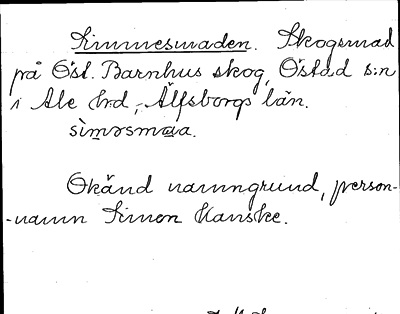 Simmesmaden. Skogsmad
på Öst. Barnhus skog, Östad s:n
i Ale hrd, Älfsborgs län.
sìməsmaa.
Okänd namngrund, person-
-namn Simon kanske.